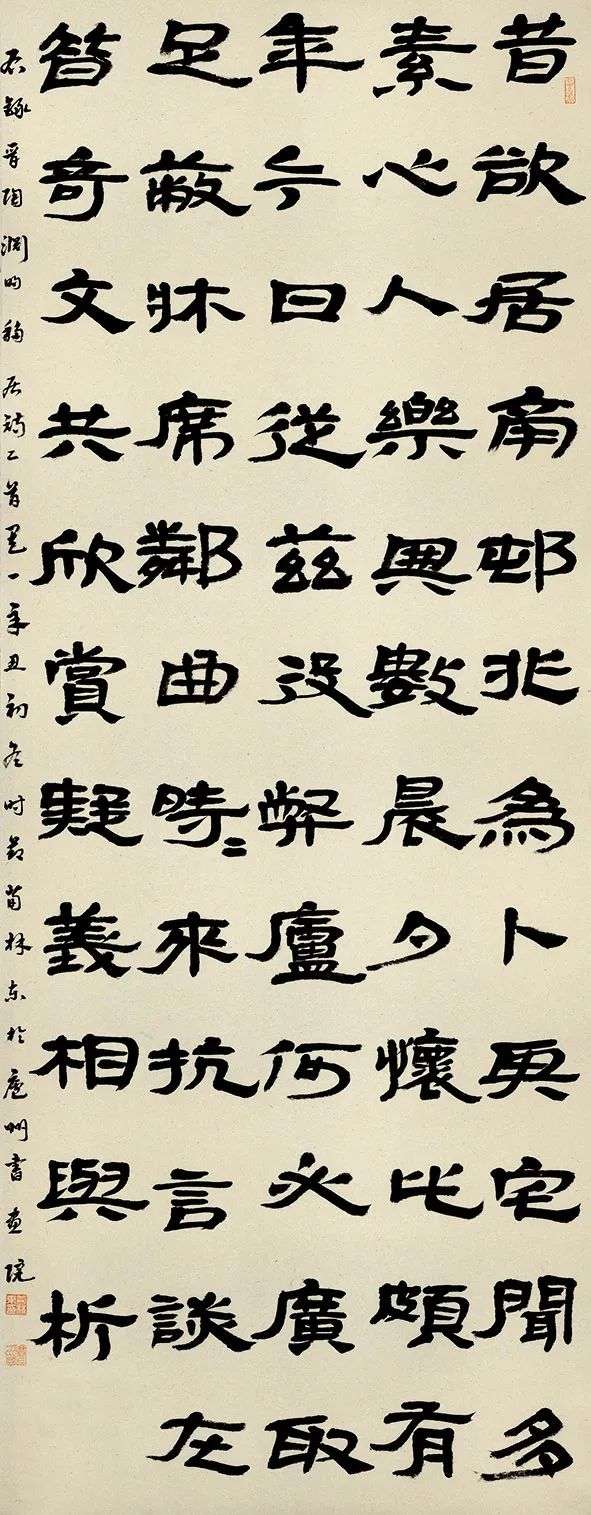 昔欲居南邨非為卜其宅聞多
素心人樂與數晨夕懷此頗有
年今日從茲役弊廬何必廣取
足蔽牀席鄰曲時〻來抗言談在
昔奇文共欣賞疑義相與析
右錄晋陶渊明移居詩二首其一辛丑初冬时节林东於廬州書画院